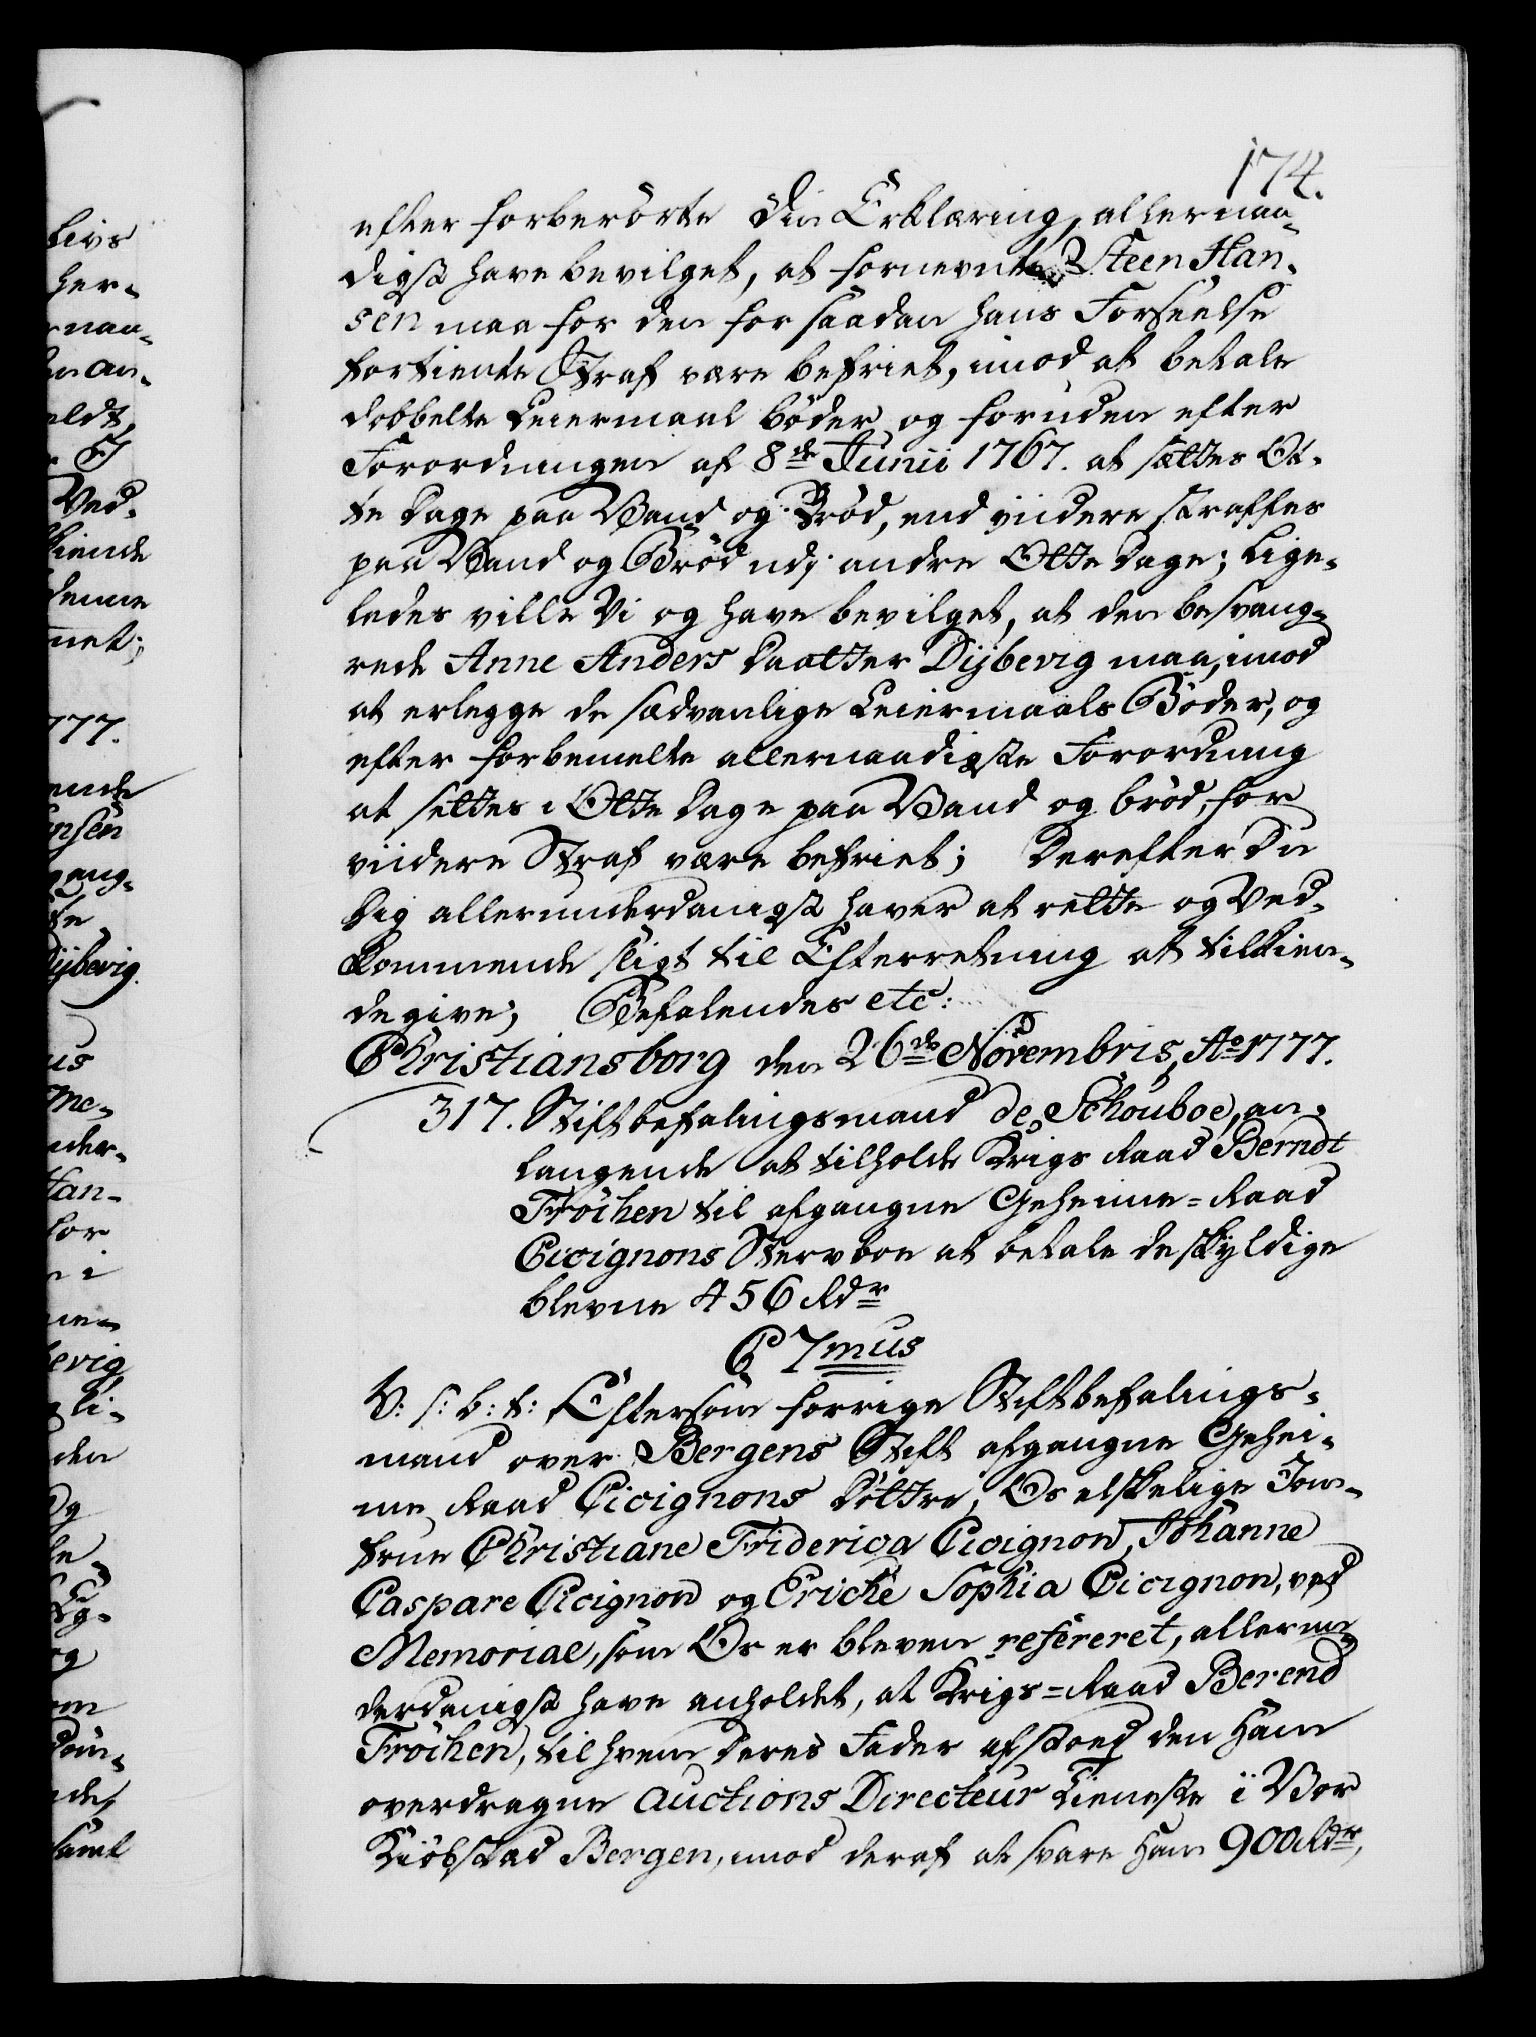 174.
efter forberörte Din Erklæring, allernaa-
digst have bevilget, at fornevnte Steen Han-
sen maa for den for saadan hans Forseelse
fortiente Straf være befriet, imod at betale
dobbelte Leiermaal böder og foruden efter
Forordningen af 8de Junii 1767. at sættes Ot-
te Dage paa Vand og Bröd, end viidere straffes
paa Vand og Bröd udj andre Otte Dage; Lige-
ledes ville Vi og have bevilget, at den besvang-
rede Anne Anders Daatter Dijbevig maa, imod
at erlegge de sædvanlige Leiermaals Böder, og
efter forbemelte allernaadigste Forordning
at settes i Otte Dage paa Vand og bröd, for
viidere Straf være befriet; Derefter Du
Dig allerunderdanigst haver at rette og Ved-
kommende sligt til Efterretning at tilkien-
degive; Befalendes etc:
Christiansborg den 26de Novembris, Ao 1777.
317. Stiftbefalingsmand de Schouboe, an-
langende at tilholde Krigs Raad Berndt
Fröchen til afgangne Geheime=Raad
Cicignons Stervboe at betale de skyldige
blevne 456 Rdr
C 7mus
V: s: b: t: Eftersom forrige Stiftbefalings-
mand over Bergens Stift afgangne Gehei-
me Raad Cicignons Döttre, Os elskelige Jom-
frue Christiane Friderica Cicignon, Johanne
Caspare Cicignon og Eriche Sophia Cicignon, ved
Memorial, som Os er bleven refereret, allerun-
derdanigst have anholdet, at Krigs=Raad Berend
Fröchen, til hvem Deres Fader afstoed den Ham
overdragne Auctions Directeur Tieneste i Vor
Kiöbstad Bergen, imod deraf at svare Ham 900 Rdr,